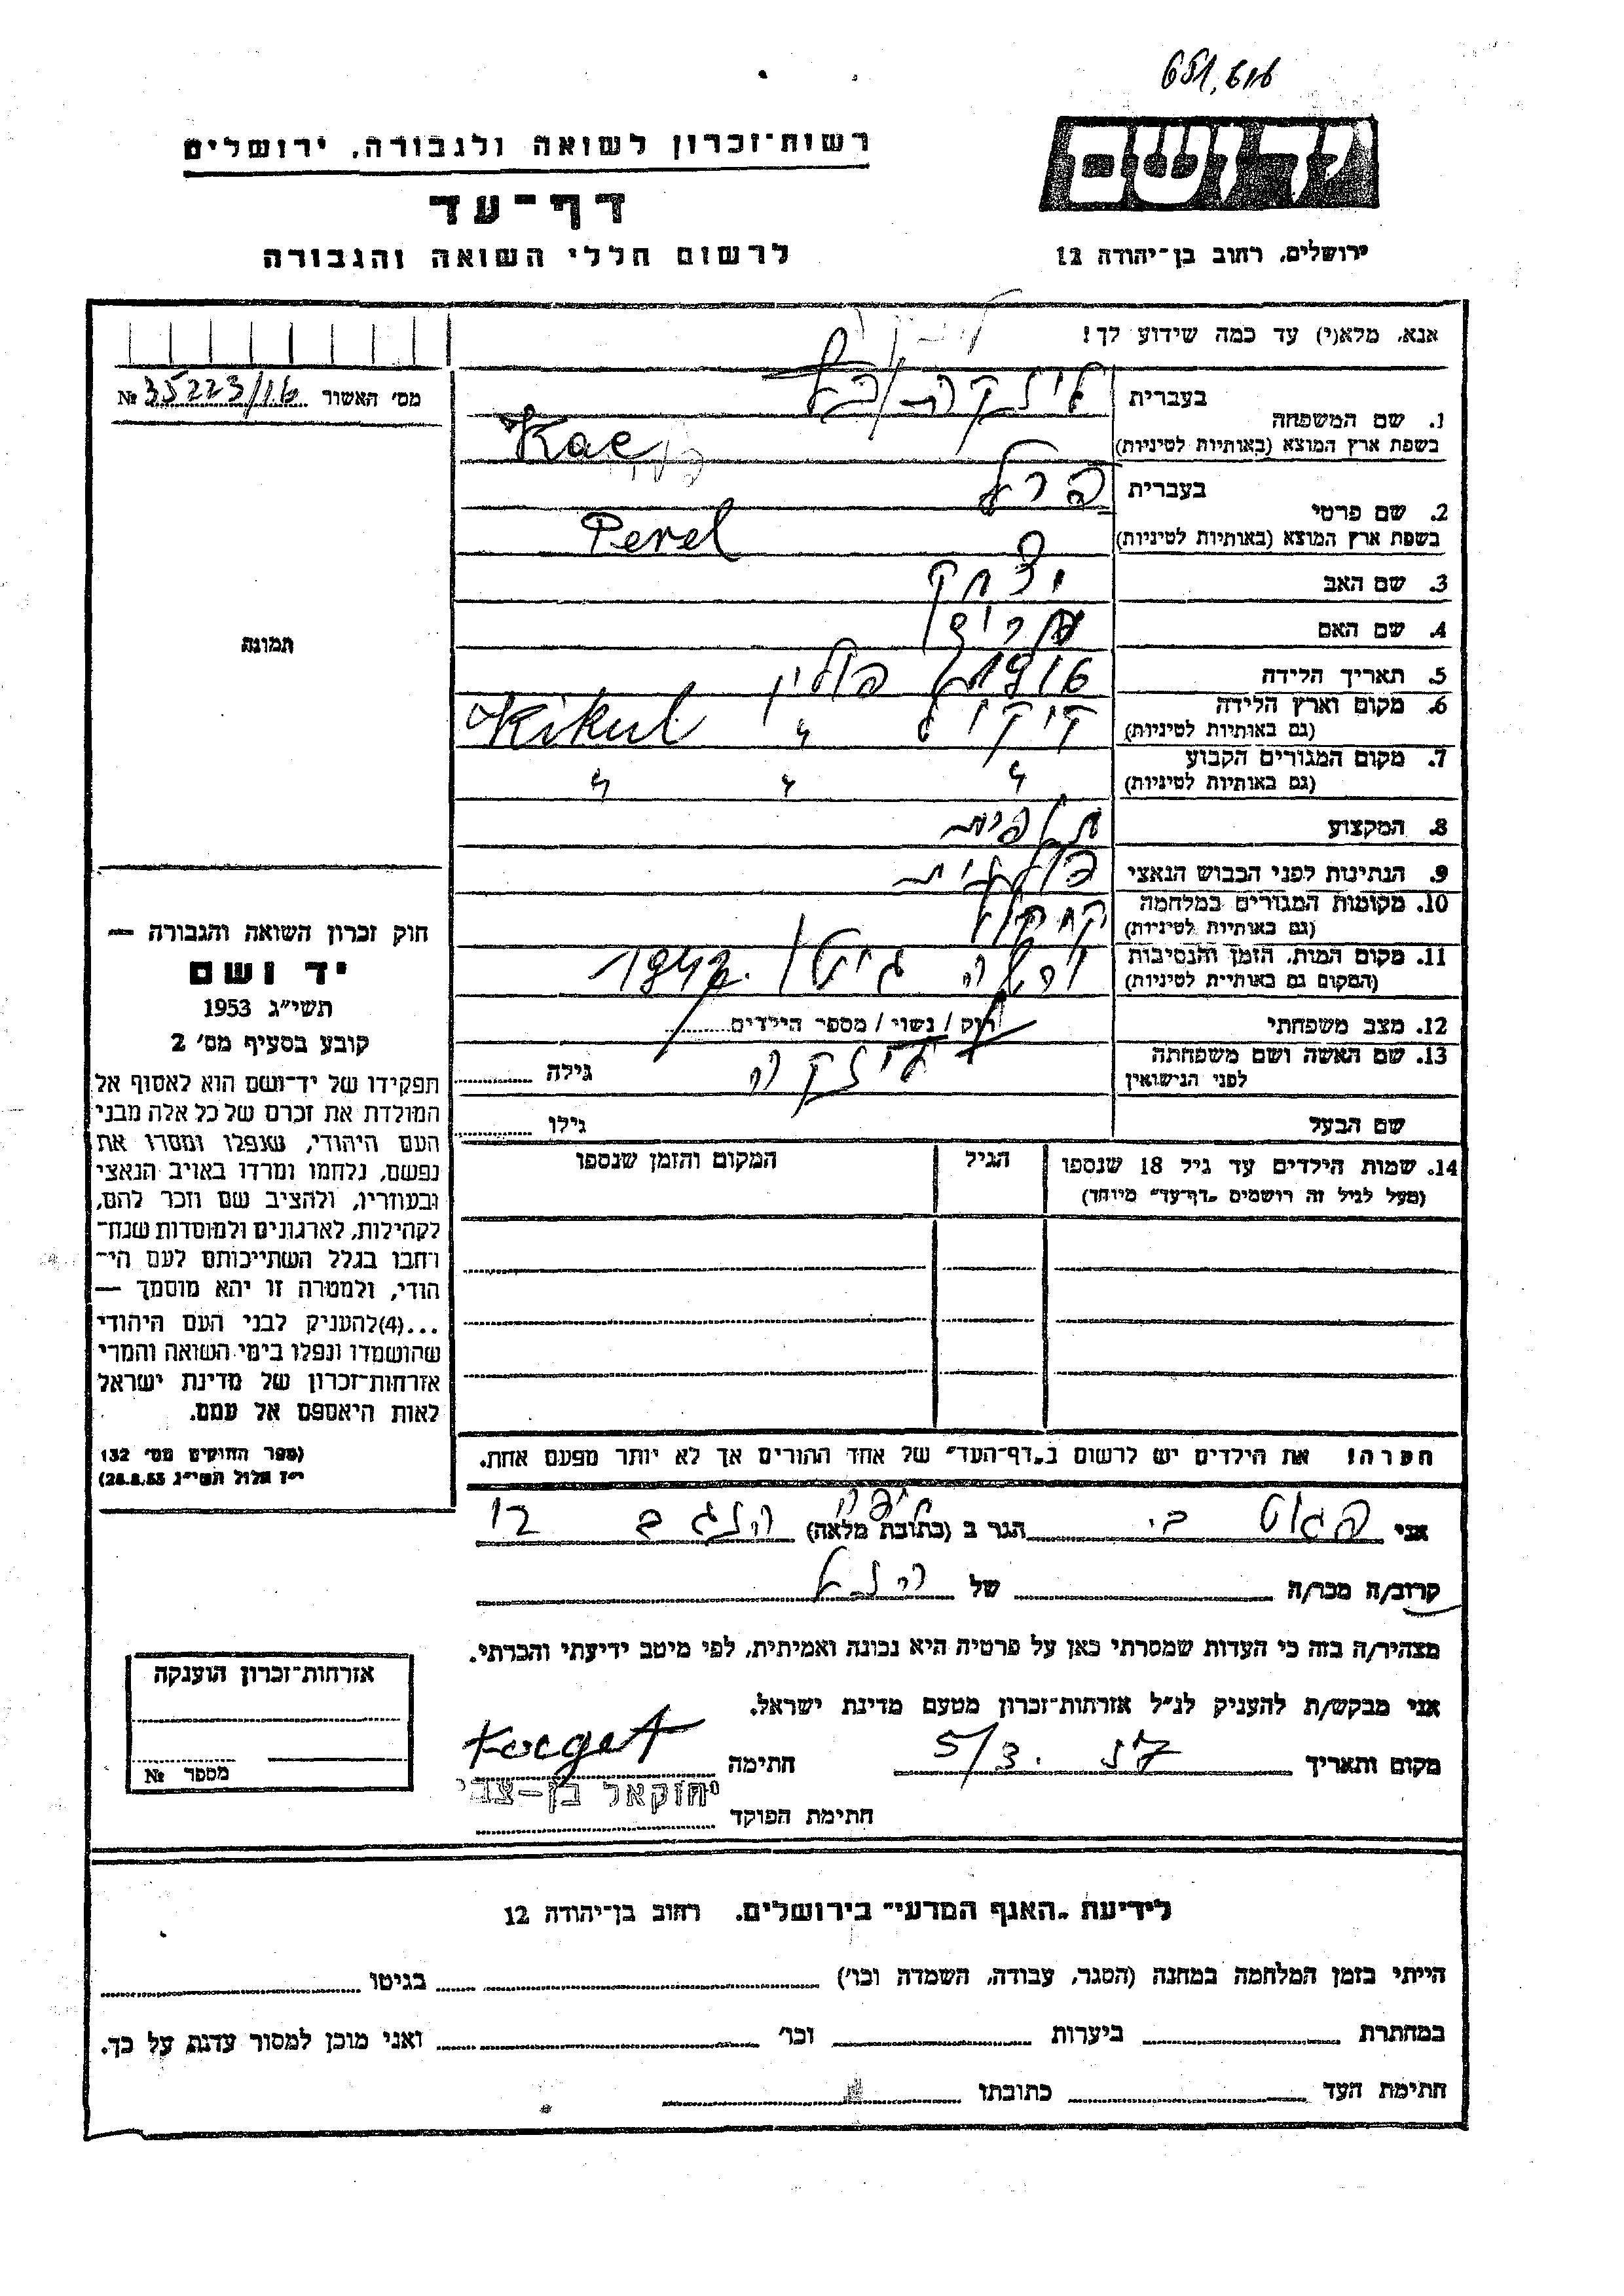 רשות־זכרון לשואה ולגבורה, ירושלים
יד ושם
דף־עד
לרשום חללי השואה והגבורה
ירושלים, רחוב בן־יהודה 12
אנא, מלא(י) עד כמה שידוע לך!
מס׳ האשור № 35223/16
1. שם המשפחה
בעברית
בשפת ארץ המוצא (באותיות לטיניות) Kac
2. שם פרטי
בעברית פרל
בשפת ארץ המוצא (באותיות לטיניות) Perel
3. שם האב יצחק
4. שם האם
5. תאריך הלידה 1916 פולין
6. מקום וארץ הלידה (גם באותיות לטיניות) קיקול " Kikul
7. מקום המגורים הקבוע (גם באותיות לטיניות) " " "
8. המקצוע
9. הנתינות לפני הכבוש הנאצי פולנית
10. מקומות המגורים במלחמה (גם באותיות לטיניות)
11. מקום המות, הזמן והנסיבות (המקום גם באותיות לטיניות) גיטו 1942
12. מצב משפחתי רוק / נשוי / מספר הילדים
13. שם האשה ושם משפחתה לפני הנישואין גילה
שם הבעל גילו
14. שמות הילדים עד גיל 18 שנספו הגיל המקום והזמן שנספו
(מעל לגיל זה רושמים „דף־עד״ מיוחד)
תמונה
חוק זכרון השואה והגבורה —
יד ושם
תשי״ג 1953
קובע בסעיף מס׳ 2
תפקידו של יד־ושם הוא לאסוף אל
המולדת את זכרם של כל אלה מבני
העם היהודי, שנפלו ומסרו את
נפשם, נלחמו ומרדו באויב הנאצי
ובעוזריו, ולהציב שם וזכר להם,
לקהילות, לארגונים ולמוסדות שנח־
רחבו בגלל השתייכותם לעם הי־
הודי, ולמטרה זו יהא מוסמך —
...(4)להעניק לבני העם היהודי
שהושמדו ונפלו בימי השואה והמרי
אזרחות־זכרון של מדינת ישראל
לאות היאספם אל עמם.
(ספר החוקים מס׳ 132
י״ז אלול תשי״ג 28.8.53)
הערה! את הילדים יש לרשום ב„דף־העד״ של אחד ההורים אך לא יותר מפעם אחת.
אני הגר ב (כתובת מלאה) חיפה 12
קרוב/ה מכר/ה של
מצהיר/ה בזה כי העדות שמסרתי כאן על פרטיה היא נכונה ואמיתית, לפי מיטב ידיעתי והכרתי.
אני מבקש/ת להעניק לנ״ל אזרחות־זכרון מטעם מדינת ישראל.
מקום ותאריך 5/3. 57 חתימה
חתימת הפוקד יחזקאל בן-צבי
אזרחות־זכרון הוענקה
מספר №
לידיעת „האגף המדעי״ בירושלים, רחוב בן־יהודה 12
הייתי בזמן המלחמה במחנה (הסגר, עבודה, השמדה וכו׳) בגיטו
במחתרת ביערות וכו׳ ואני מוכן למסור עדות על כך.
חתימת העד כתובתו